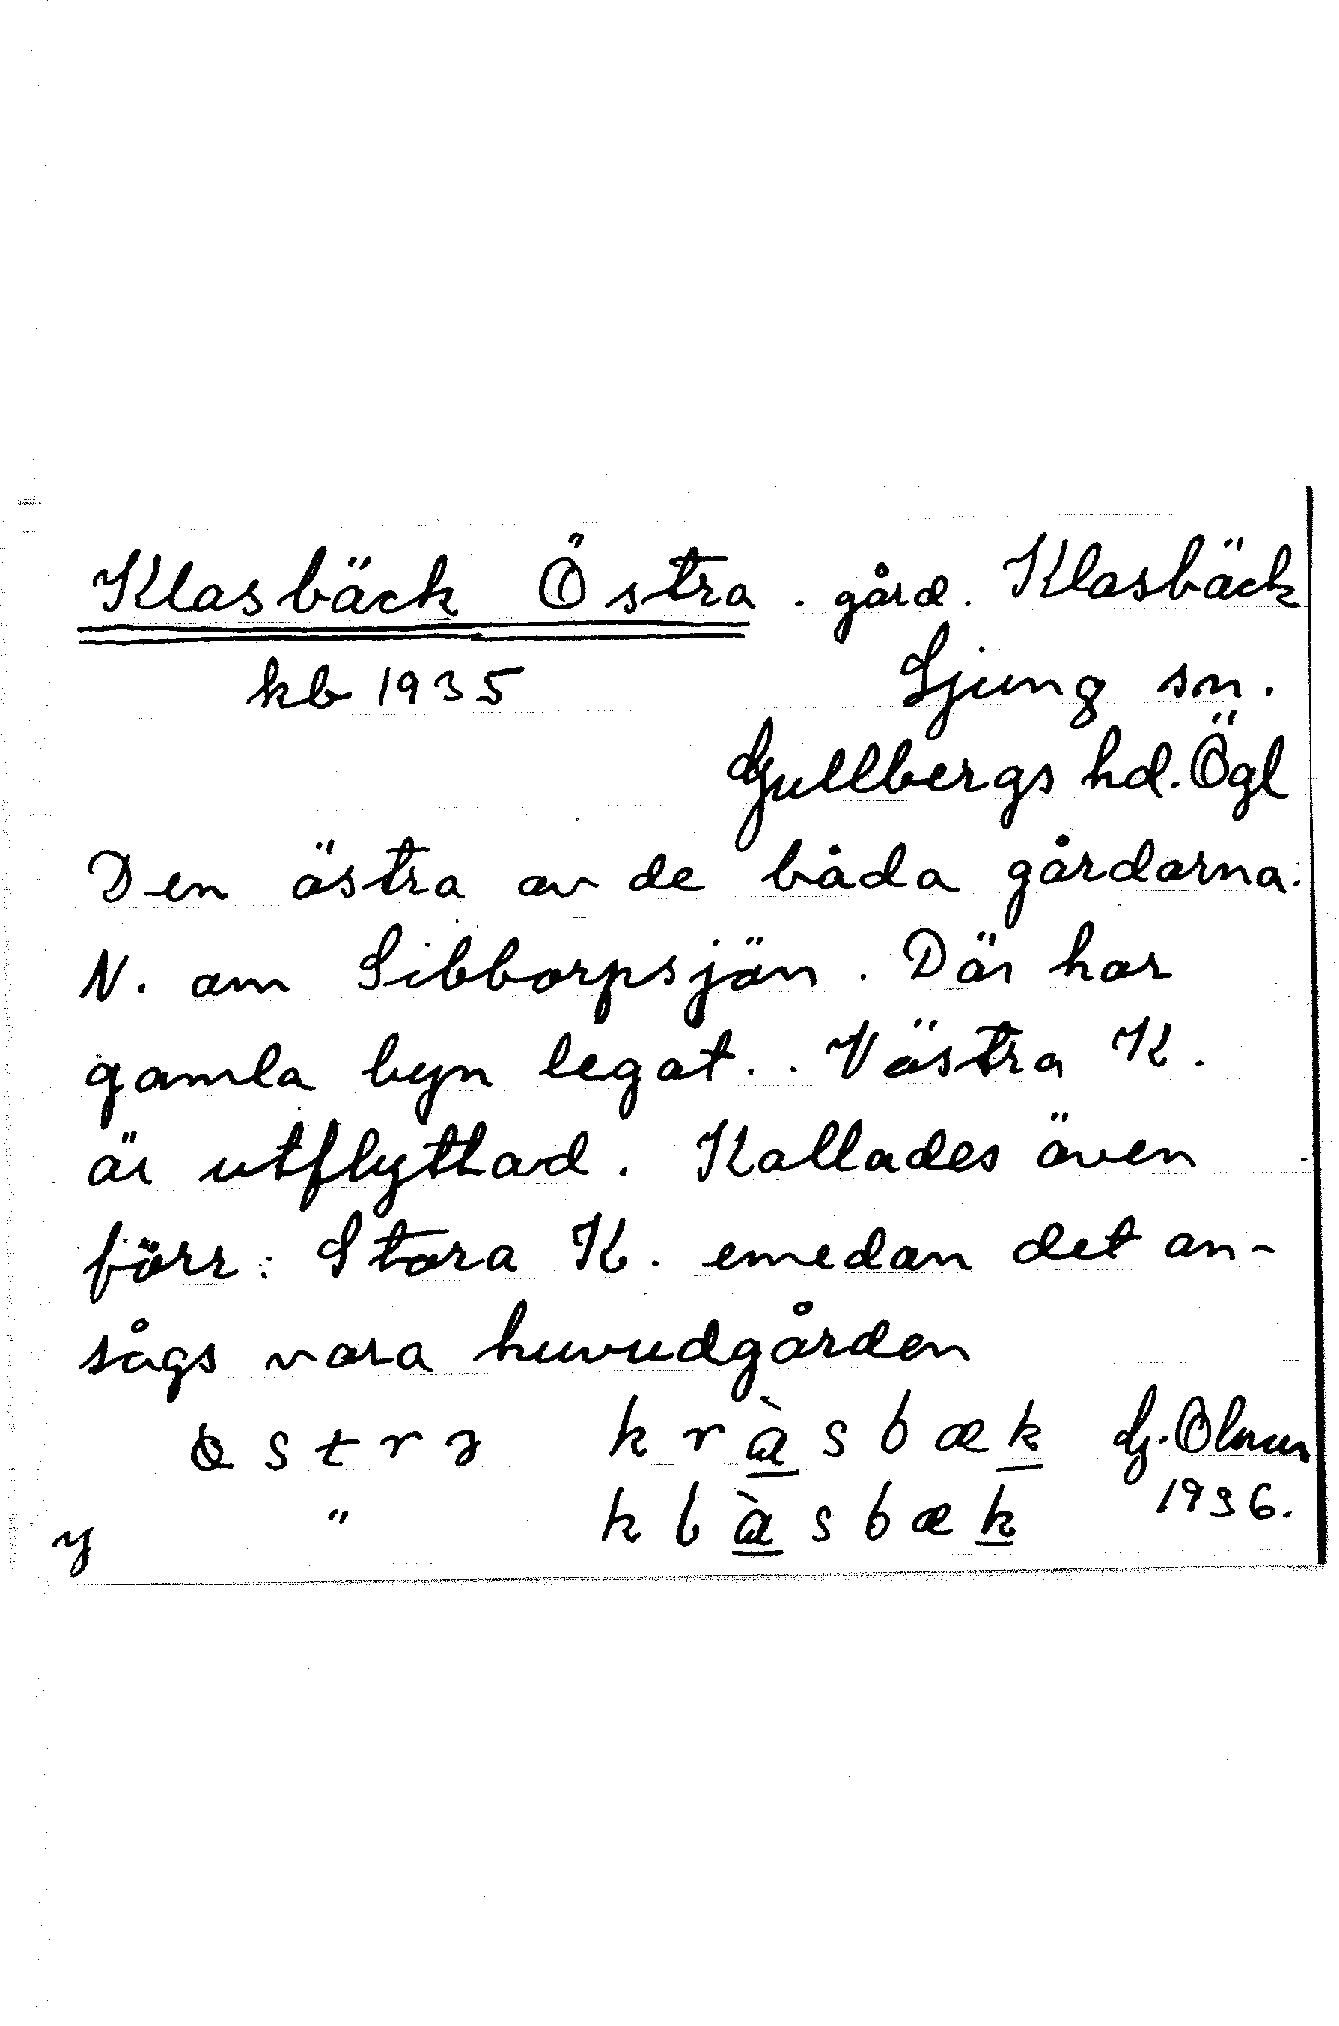 Klasbäck Östra . gård. Klasbäck
kb 1935 Ljung sn.
Gullbergs hd. Ögl
Den östra av de båda gårdarna.
N. om Sibborpsjön. Där har
gamla byn legat. . Västra K.
är utflyttad. Kallades även
förr: Stora K. emedan det an-
sågs vara huvudgården
kràsbæk
" kbàsbæk 1936.
y